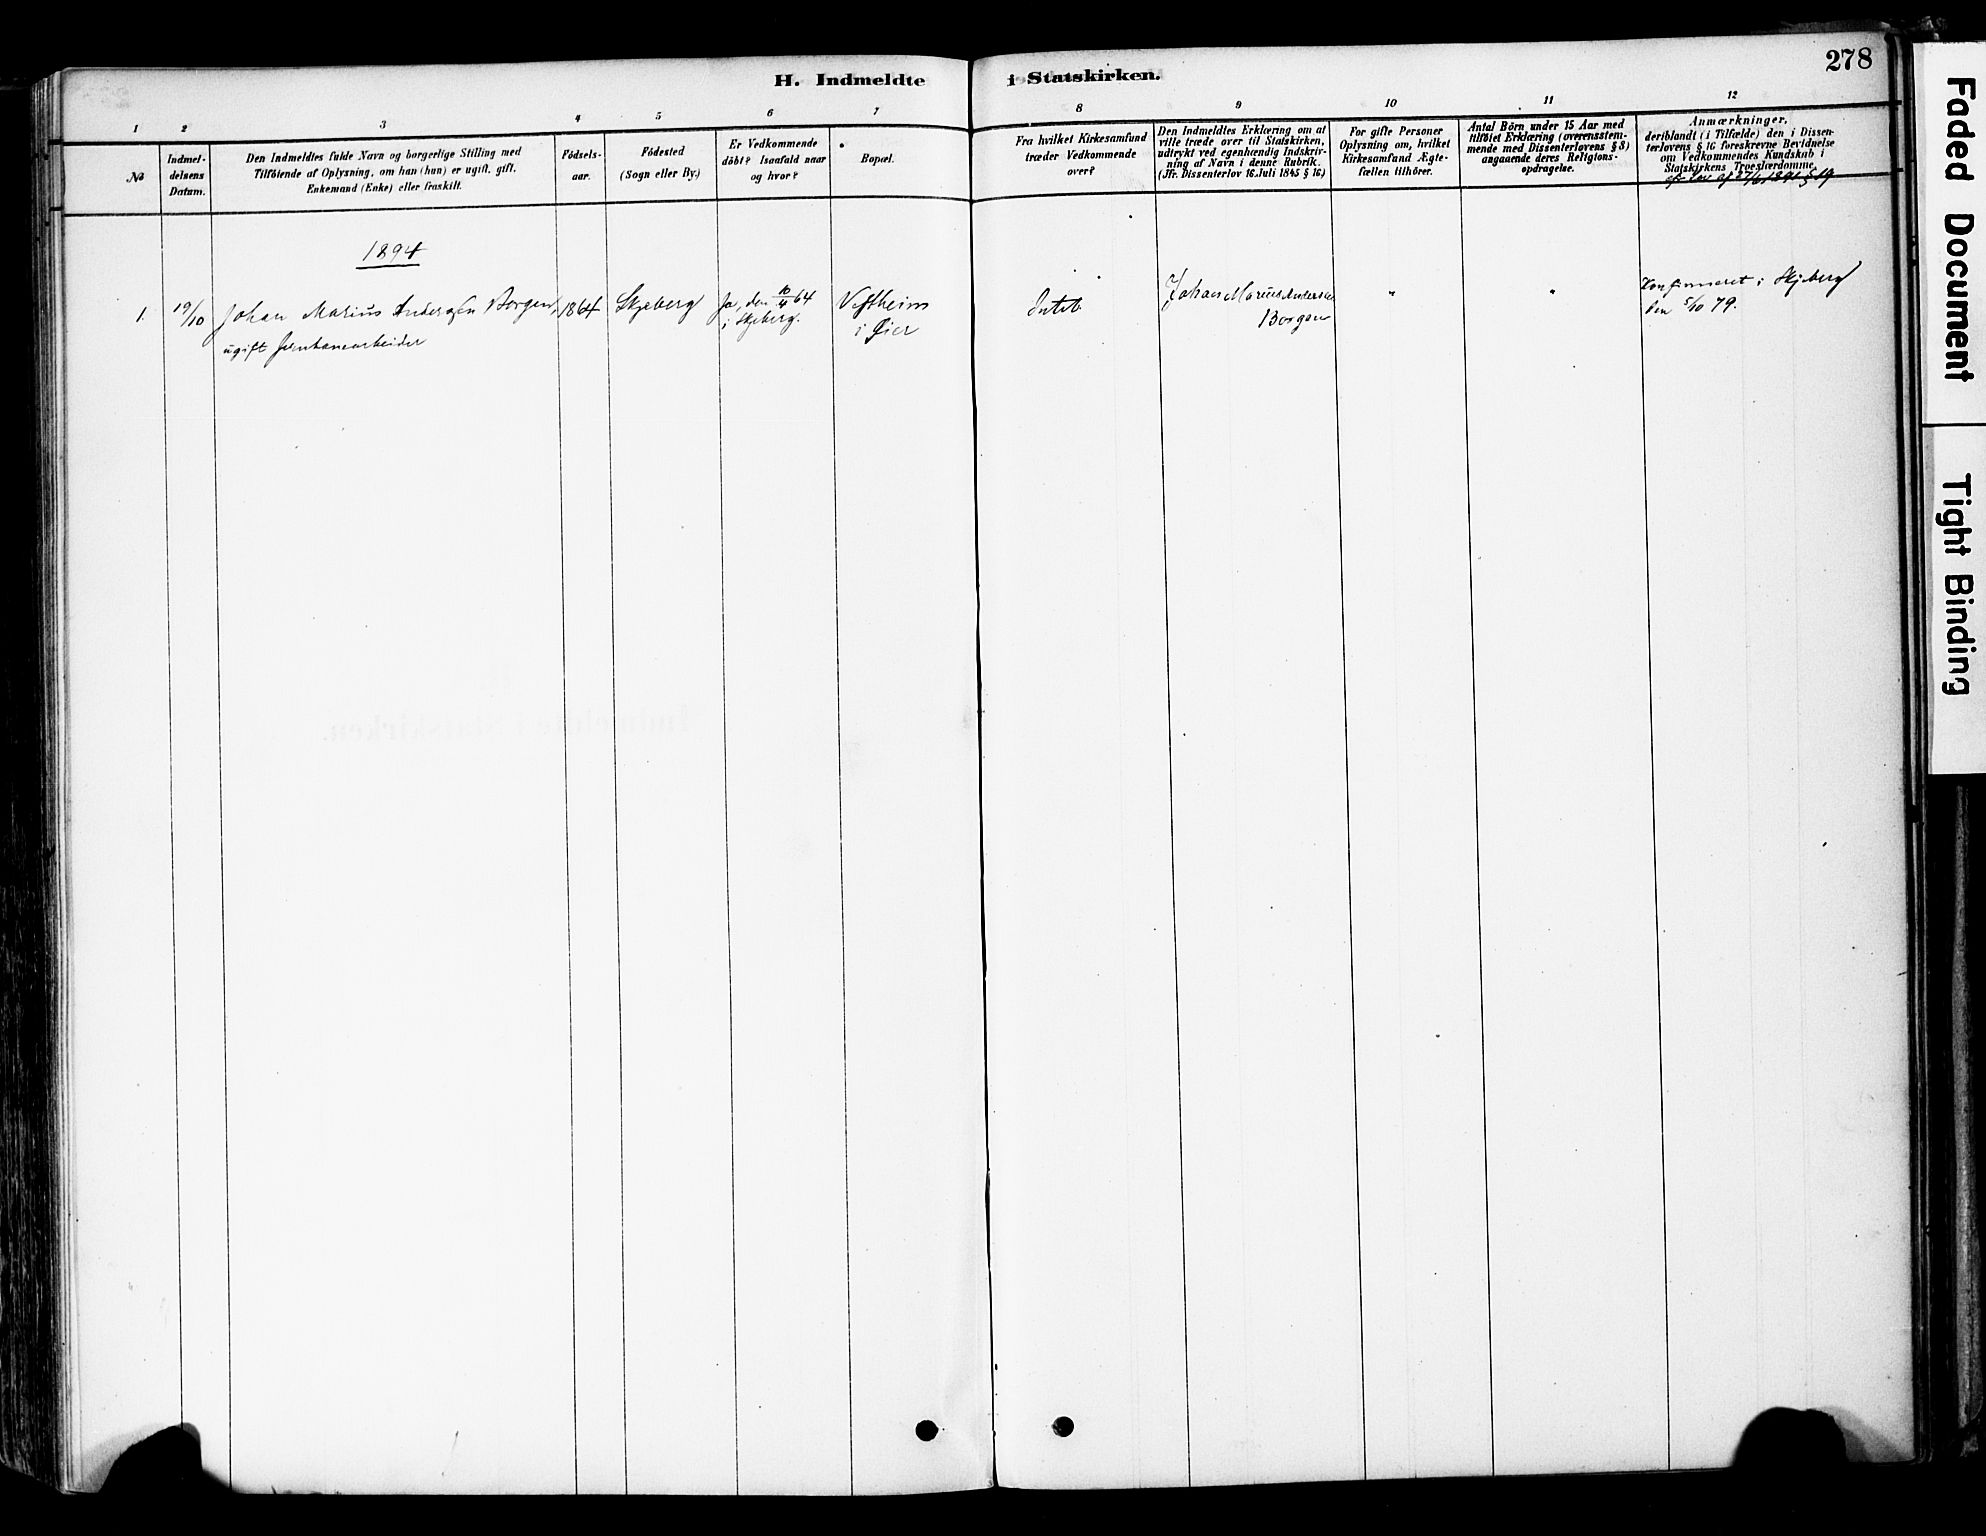 278
H. Indmeldte i Statskirken.
1 2 3 4 5 6 7 8 9 10 11 12
№
Indmel-
delsens
Datum.
Den Indmeldtes fulde Navn og borgerlige Stilling med
Tilföiende af Oplysning, om han (hun) er ugift, gift,
Enkemand (Enke) eller fraskilt.
Födsels-
aar.
Födested
(Sogn eller By.)
Er Vedkommende
döbt? Isaafald naar
og hvor?
Bopæl.
Fra hvilket Kirkesamfund
træder Vedkommende
over?
Den Indmeldtes Erklæring om at
ville træde over til Statskirken,
udtrykt ved egenhændig Indskriv-
ning af Navn i denne Rubrik.
(Jfr. Dissenterlov 16 Juli 1845 § 16.)
For gifte Personer
Oplysning om, hvilket
Kirkesamfund Ægte-
fællen tilhörer.
Antal Börn under 15 Aar med
tilföiet Erklæring (overensstem-
mende med Dissenterlovens § 8)
angaaende deres Religions-
opdragelse.
Anmærkninger,
deriblandt (i Tilfælde) den i Dissen-
terlovens § 16 foreskrevne Bevidnelse
om Vedkommendes Kundskab i
Statskirkens Troeslærdomme.
Lov af 27/6 1891 § 19
1894
1.
19/10
Johan Marius Andersen Borgen,
ugift Jernbanearbeider
1864
Skjeberg
Ja, den 10/4 64
i Skjeberg.
Vestheim
i Øier
Intet
Johan Marius Andersen
Borgen
"
"
Konfirmeret i Skjeberg
den 5/10 79.
Faded Document
Tight Binding